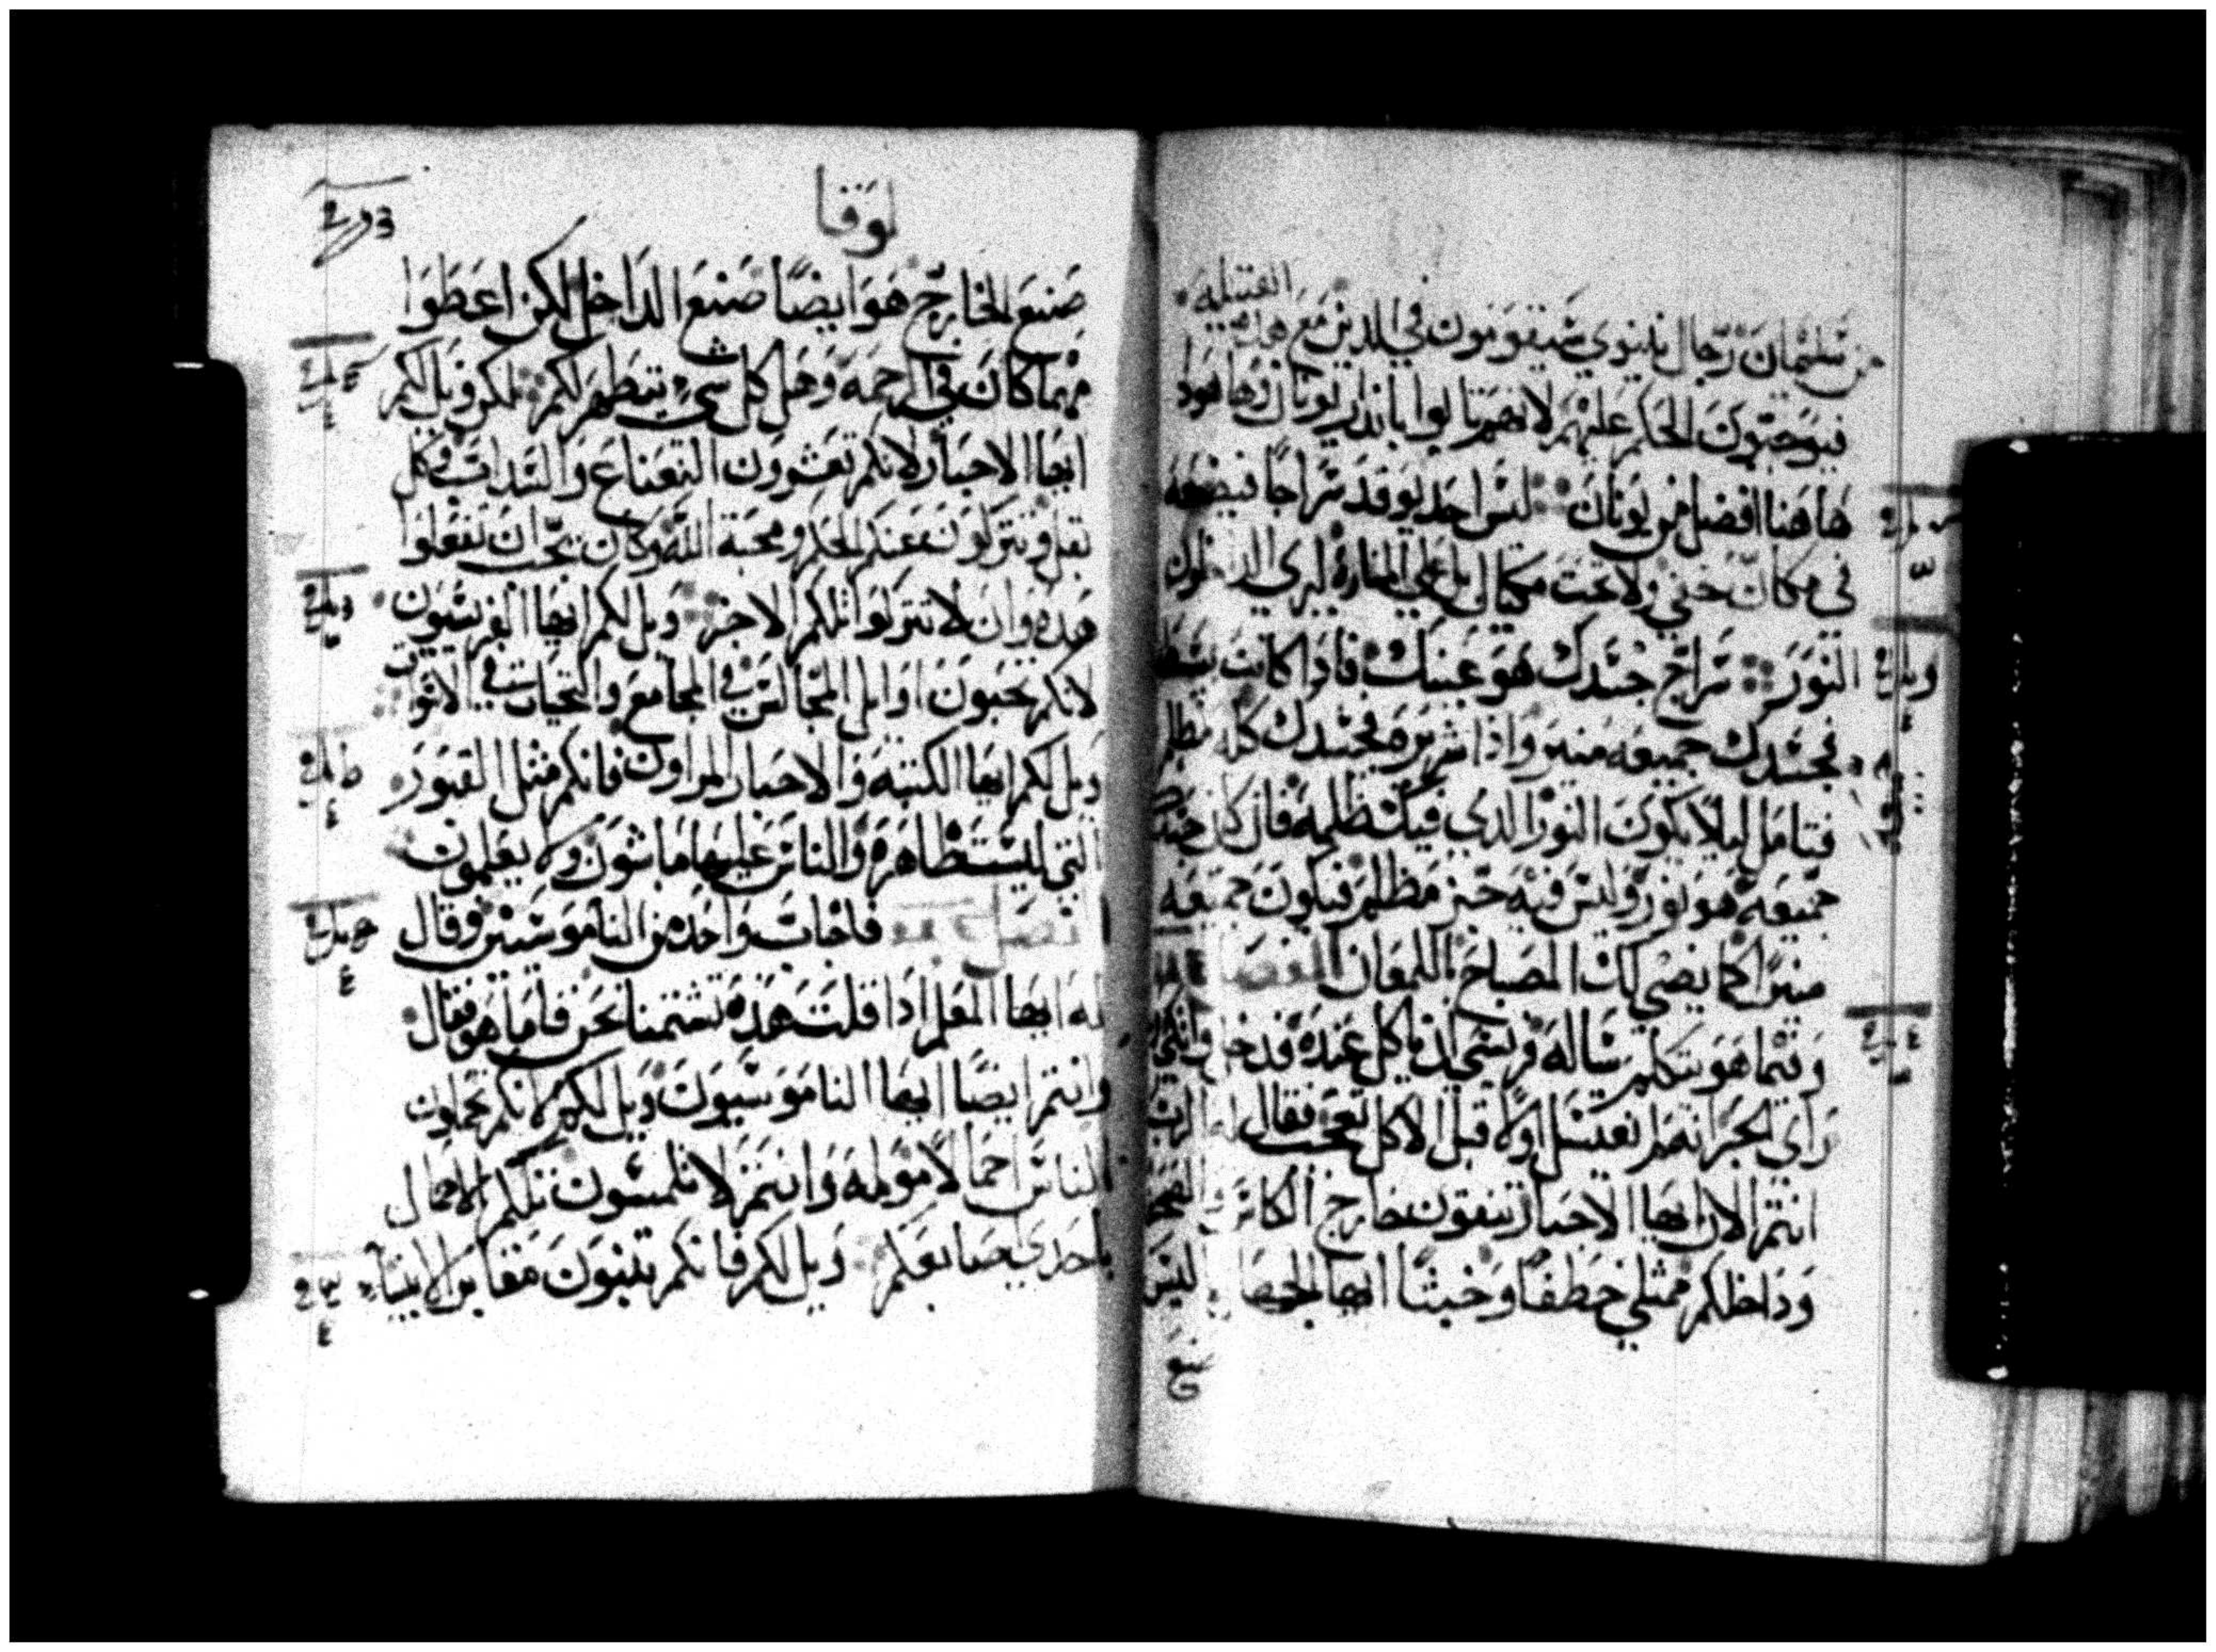 القبيله
من سليمان رجال نينوي سيقومون في الدين مع هده
فيوجبون الحكم عليهم لانهم تابوا بانذار يونان وهاهودا
هاهنا افضل من يونان ليس احد يوقد سراجا فيضعه
في مكان خفي ولا تحت مكيال بل علي المناره ليري الداخلون
النور سراج جسدك هو عينك فادا كانت بسيطه
فجسدك جميعه منير واذا شريره فجسدك كله مظلم
فتامل ليلا يكون النور الدي فيك ظلمه فان كان جسدك
جميعه هو نور وليس فيه جز مظلم فيكون جميعه
منيرا كما يضي لك المصباح باللمعان الفصل
وبينما هو يتكلم ساله فريسي ان ياكل عنده فدخل واتكي
راي الحبر انه لم يغتسل اولا قبل الاكل تعجب فقال له الرب
انتم الان ايها الاحبار تنقون خارج الكاس
وداخلكم ممتلي خطفا وخبثا ايها الجهال اليس
صنع
لوقا
صنع الخارج هو ايضا صنع الداخل لكن اعطوا
مهما كان في الرحمه وهل كل شي يتطهر لكم لكن ويل لكم
ايها الاحبار لانكم تعشرون النعناع والسداب وكل
بقل وتتركون عنكم الحكم ومحبة الله وكان يجب ان تفعلوا
هده وان لا تتركوا تلكم الاخر ويل لكم ايها الفريسيون
لانكم تحبون اوايل المجالس في المجامع والتحيات في الاسواق
ويل لكم ايها الكتبه والاحبار المراون فانكم مثل القبور
التي ليست ظاهره والناس عليها ماشون ولا يعلمون
فصل فاجاب واحد من الناموسيين وقال
له ايها المعلم ادا قلت هذه تشتمنا نحن فاما هو فقال
وانتم ايضا ايها الناموسيون ويل لكم لانكم تحملون
الناس احمالا مولمه وانتم لا تلمسون تلكم الاحمال
باحدي اصابعكم ويل لكم فانكم تبنون مقابر الانبياء